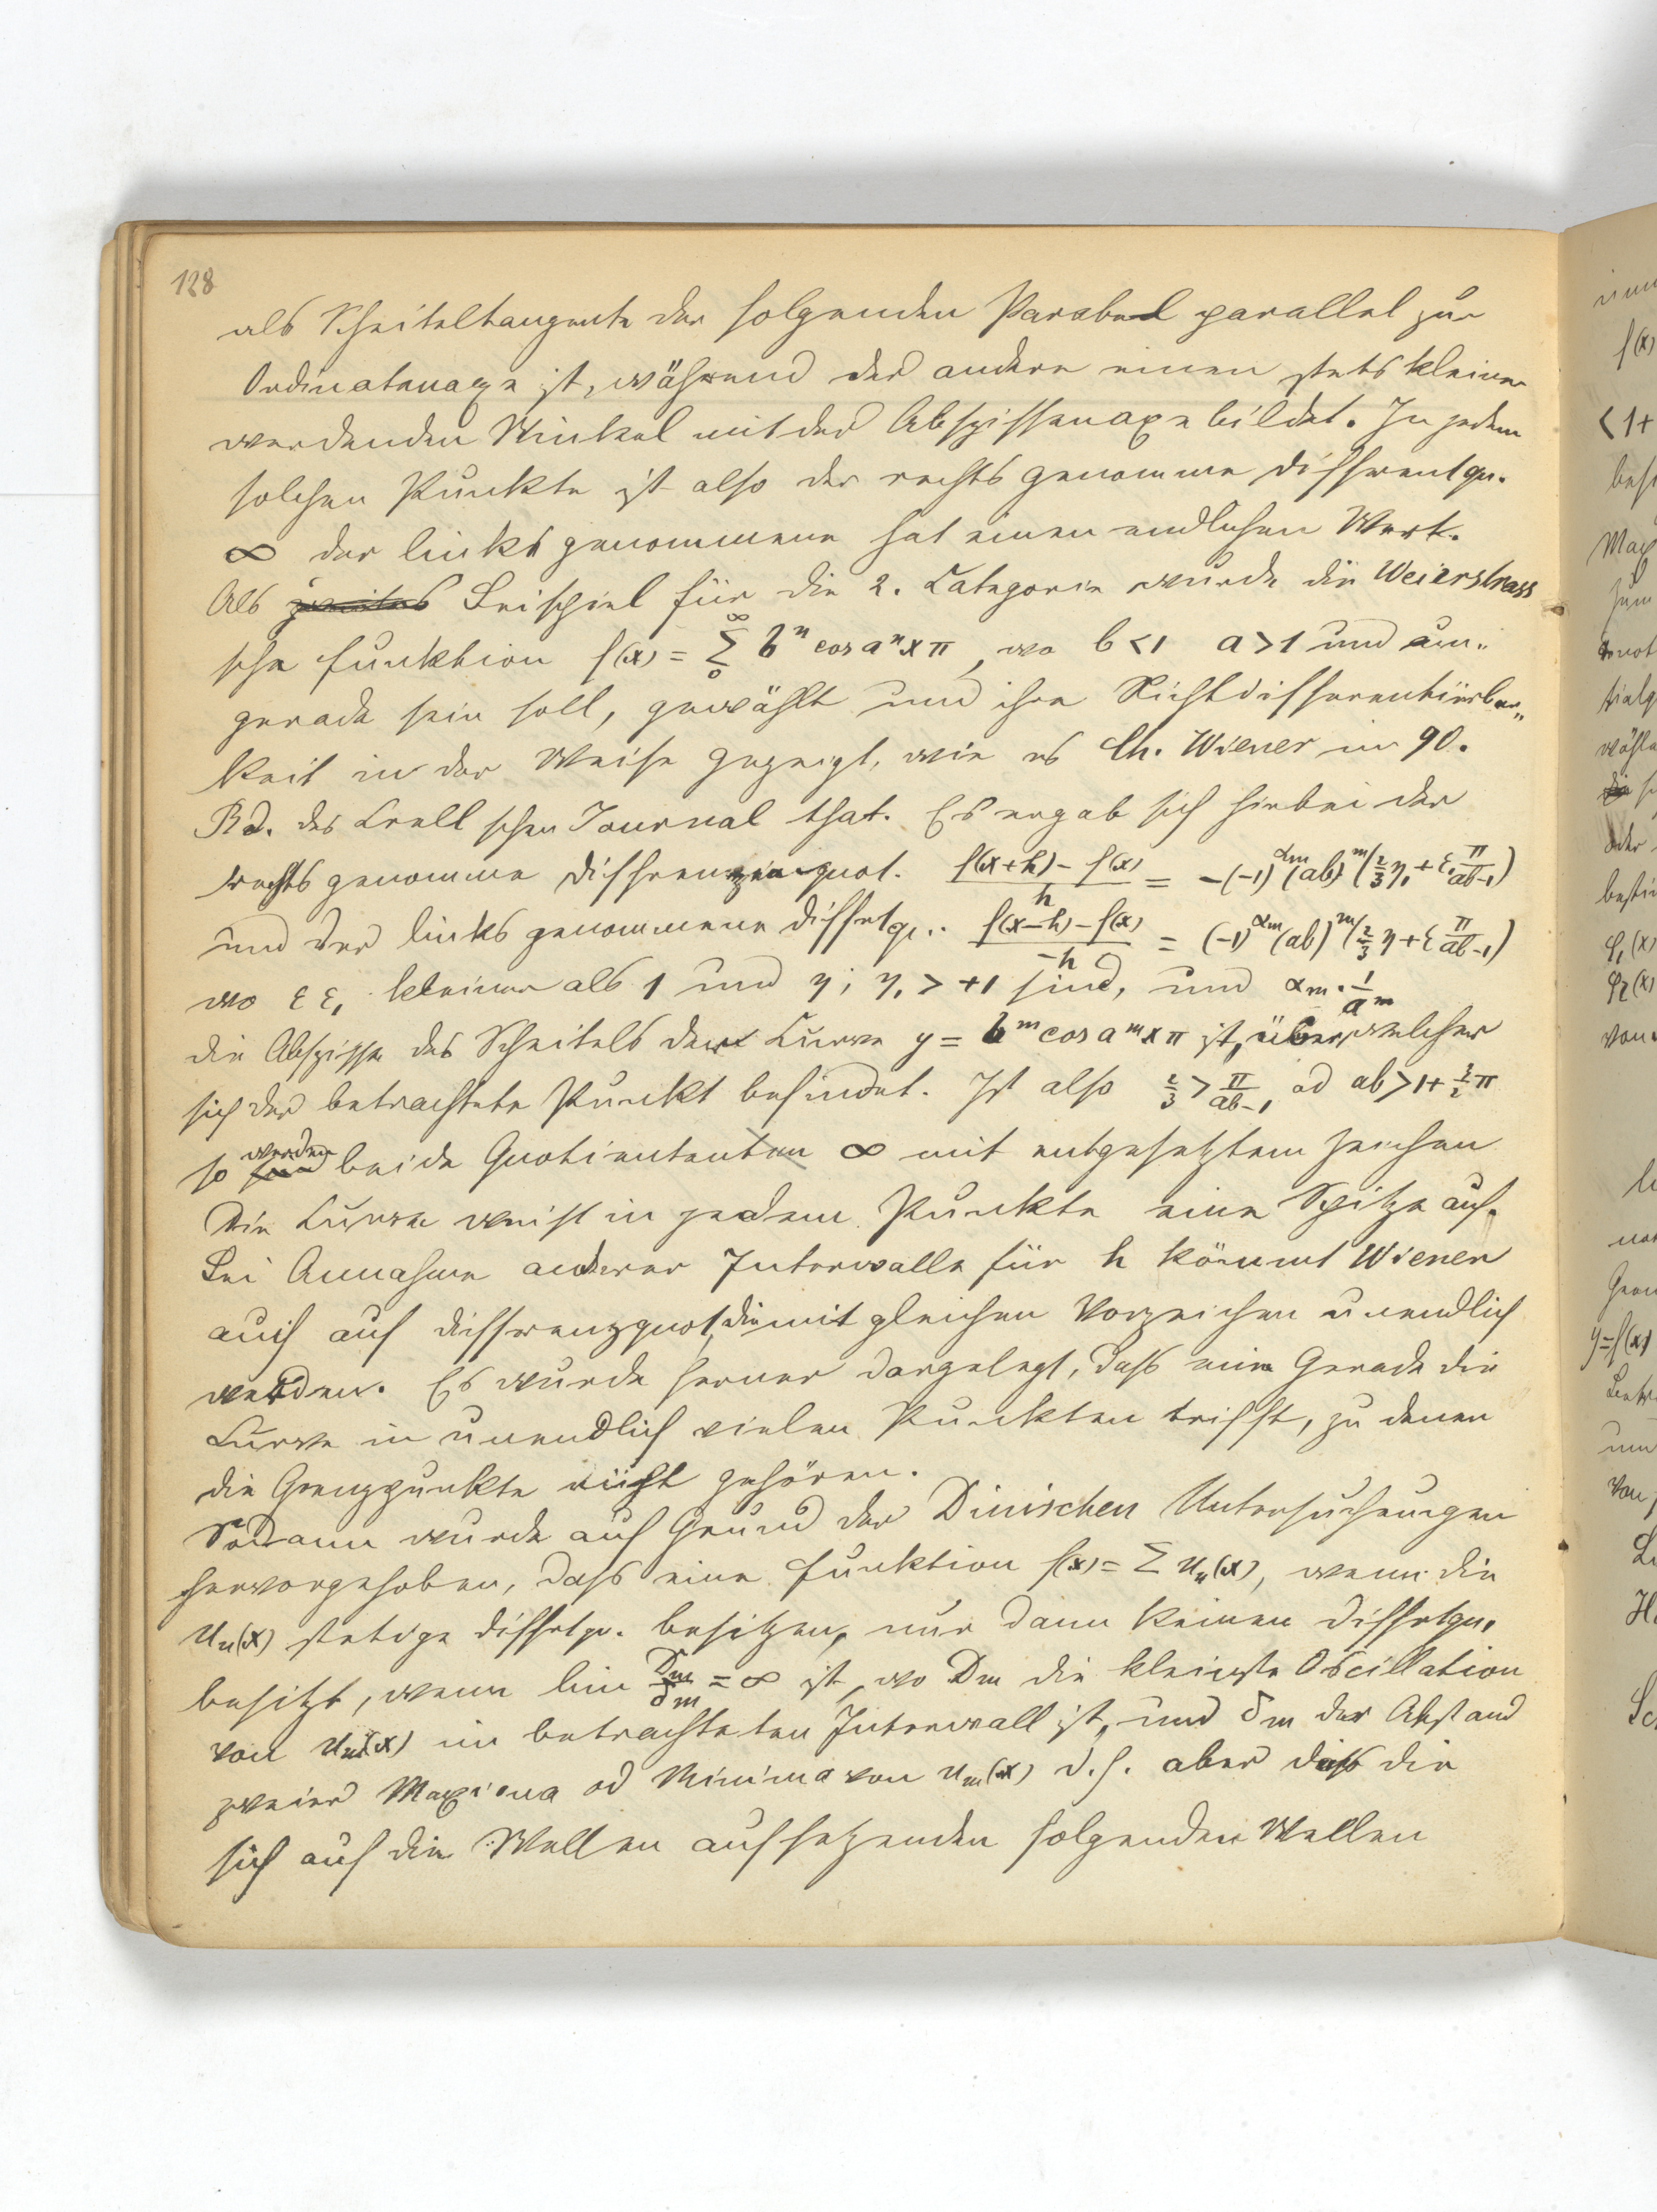 128
als Scheiteltangente der folgenden Parabel parallel zur
Ordinatenaxe ist, während der andere einen stets kleiner
werdenden Winkel mit der Abszissenaxe bildet. In jedem
solchen Punkte ist also der rechts genommene Differentqu.
∞ der links genommene hat einen endlichen Wert.
Als zweites Beispiel für die 2. Categorie wurde die Weierstrass
sche Funktion f(x) = ∑₀^∞ bⁿ cos aⁿ x π, wo b < 1 a > 1 und un„
gerade sein soll, gewählt und ihre Nichtdifferentiirbar„
keit in der Weise gezeigt, wie es Ch. Wiener im 90.
Bd. des Crell schen Journal that. Es ergab sich hiebei der
rechts genommene Differenzenquot. (f(x+h) – f(x))/h = –(–1)^αm (ab)^m (2/3 η₁ + ε₁ π/(ab–1))
und der links genommene Differqu. (f(x–h) – f(x))/–h = (–1)^αm (ab)^m (2/3 η + ε π/(ab–1))
wo ε ε₁ kleiner als 1 und η; η₁ > +1 sind, und αm · 1/a^m
die Abszisse des Scheitels der Curve y = b^m cos a^m x π ist, über welcher
sich der betrachtete Punkt befindet. Ist also 2/3 > π/(ab–1) od ab > 1 + 3/2 π
so werden beide Quotienten ∞ mit entgesetztem Zeichen
Die Curve weist in jedem Punkte eine Spitze auf.
Bei Annahme anderer Intervalle für h kömmt Wiener
auch auf Differenzquot, die mit gleichen Vorzeichen unendlich
werden. Es wurde ferner dargelegt, daß eine Gerade die
Curve in unendlich vielen Punkten trifft, zu denen
die Grenzpunkte nicht gehören.
Sodann wurde auf Grund der Dinischen Untersuchungen
hervorgehoben, daß eine Funktion f(x) = ∑ uₙ(x), wenn die
uₙ(x) stetige Differtqu. besitzen, nur dann keinen Differtqu.
besitzt, wenn lim Dm/δm = ∞ ist, wo Dm die kleinste Oscillation
von um(x) im betrachteten Intervall ist, und δm der Abstand
zweier Maxima od Minima von um(x) d.h. aber daß die
sich auf die Wellen aufsetzenden folgenden Wellen